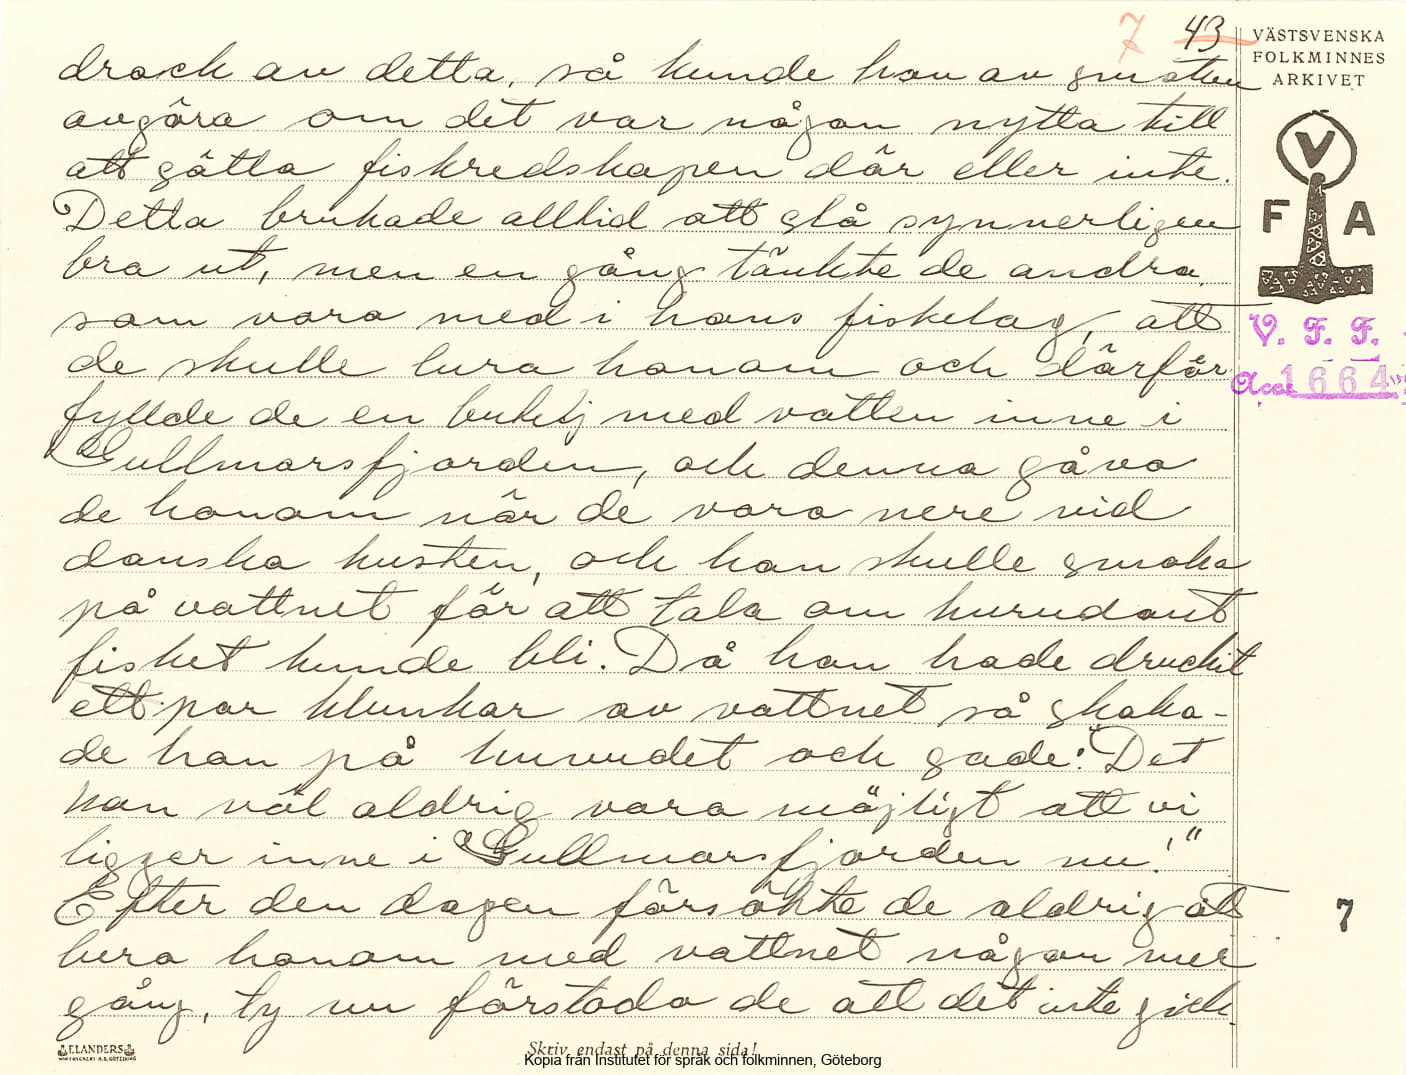 7 43
VÄSTSVENSKA
FOLKMINNES
ARKIVET
drack av detta, så kunde han av smaken
avgöra om det var någon nytta till
att sätta fiskredskapen där eller inte.
Detta brukade alltid att slå synnerligen
bra ut, men en gång tänkte de andra
som voro med i hans fiskelag, att
de skulle lura honom och därför
fyllde de en butelj med vatten inne i
Gullmarsfjorden, och denna gåvo
de honom när de voro nere vid
danska kusten, och han skulle smaka
på vattnet för att tala om hurudant
fisket kunde bli. Då han hade druckit
ett par klunkar av vattnet så skaka-
de han på huvudet och sade: "Det
kan väl aldrig vara möjligt att vi
ligger inne i Gullmarsfjorden nu!"
Efter den dagen försökte de aldrig att
lura honom med vattnet någon mer
gång, ty nu förstodo de att det inte gick.
V
F A
V. F. F.
Acc. 1664
7
ELANDERS
Skriv endast på denna sida!
Kopia från Institutet för språk och folkminnen, Göteborg